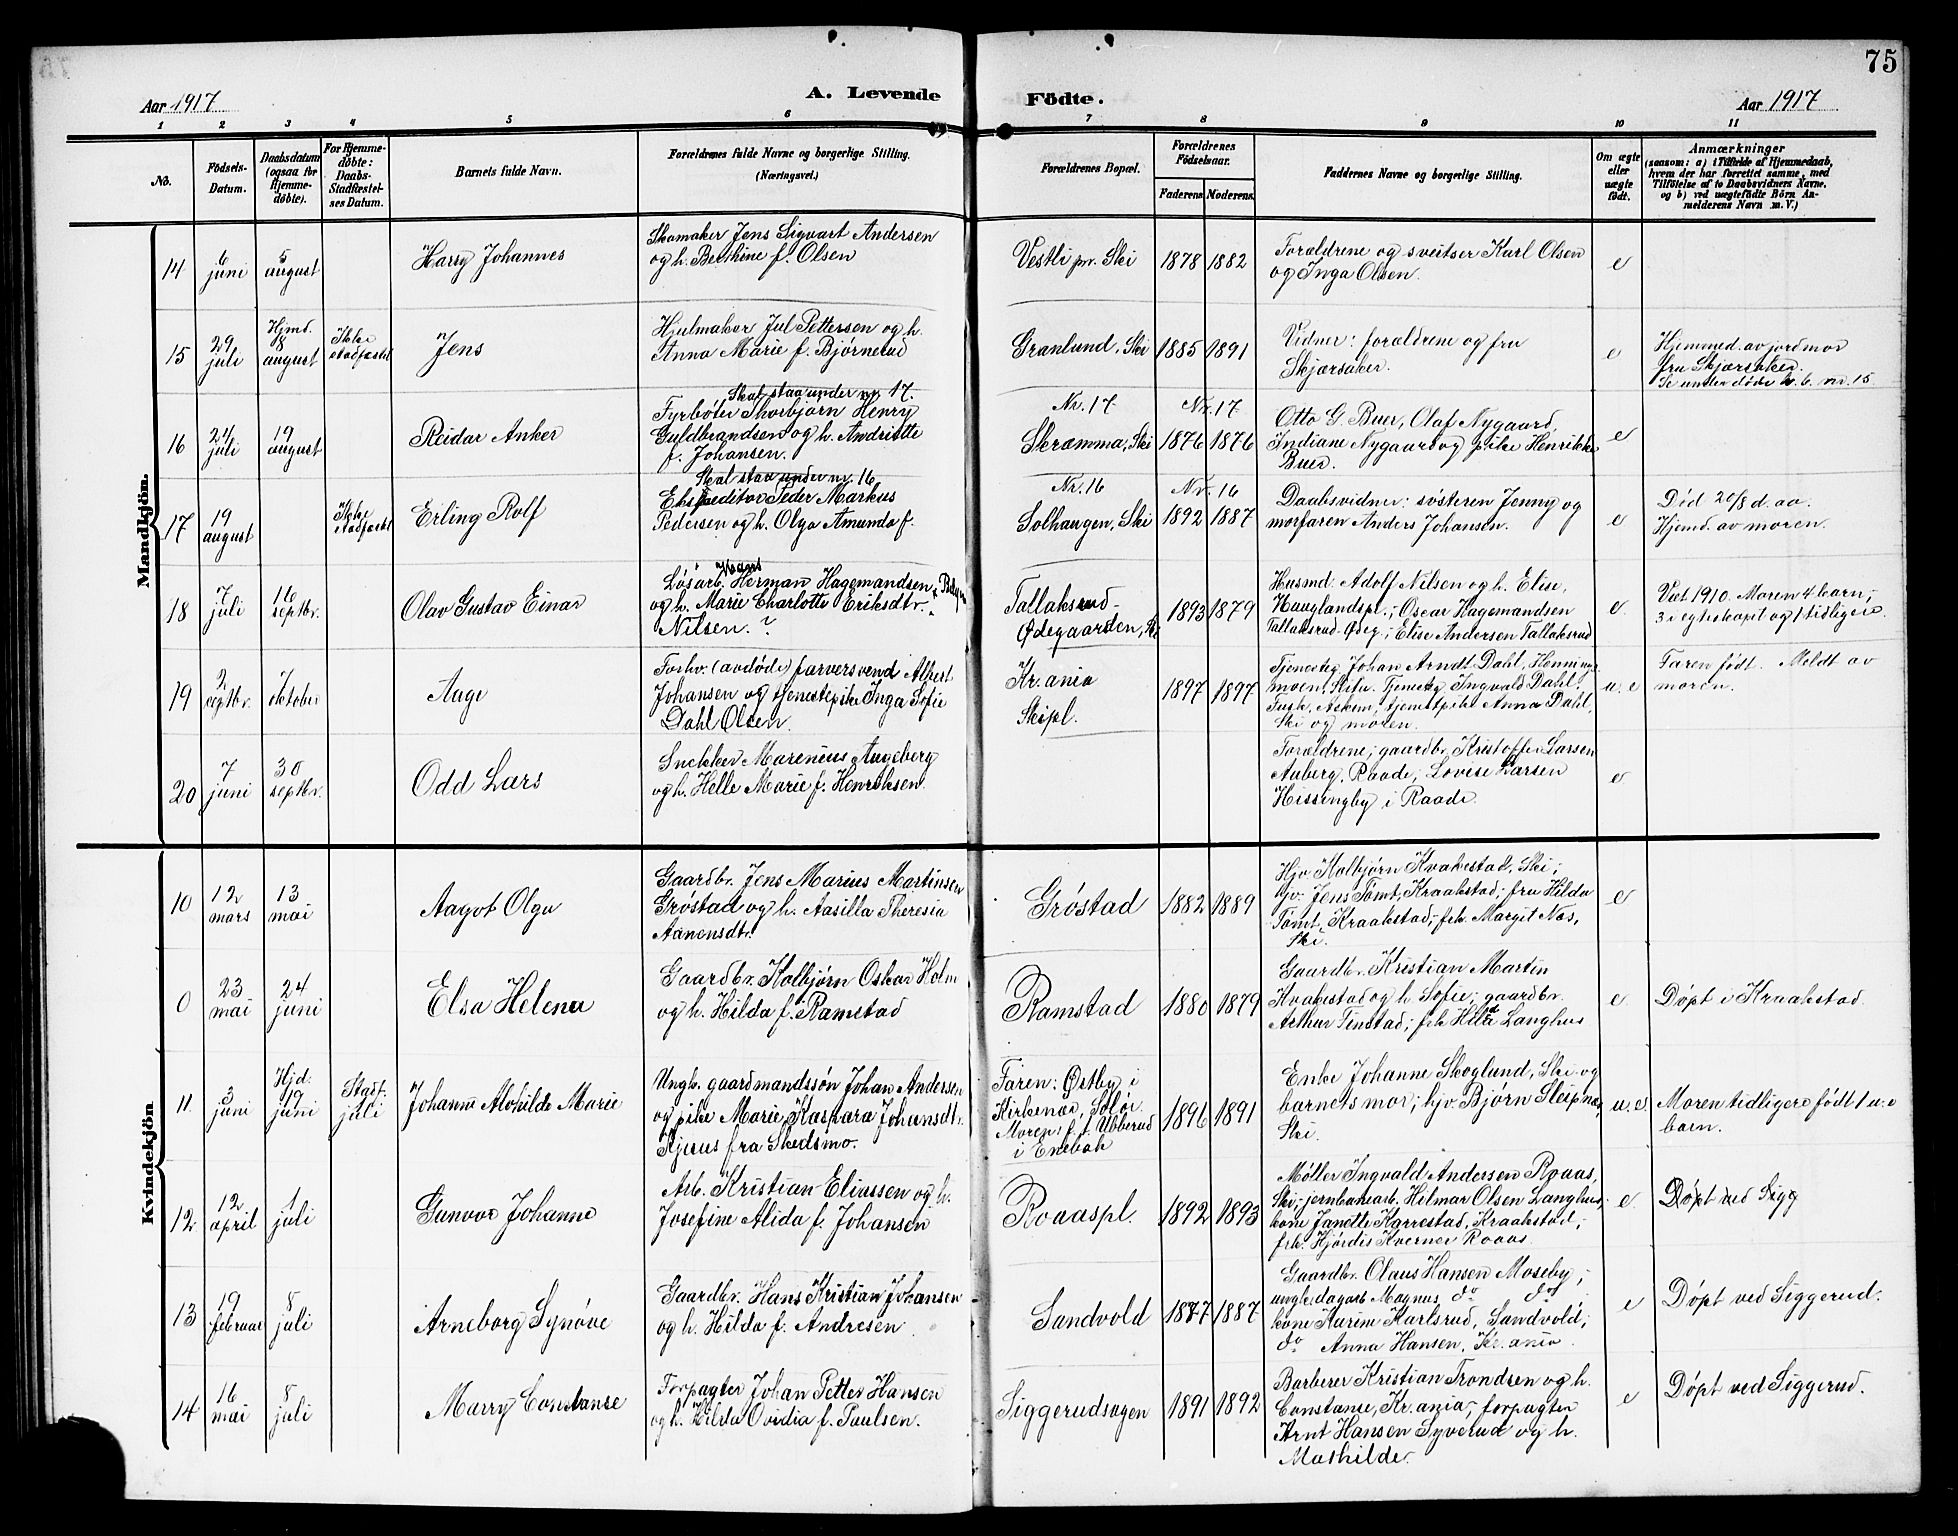 75
Aar 1917
A. Levende
Födte.
Aar 1917
1 2 3 4 5 6 7 8 9 10 11
No.
Födsels-
Datum.
Daabsdatum
(ogsaa for
Hjemme-
døbte).
For Hjemme-
døbte:
Daabs-
Stadfæstel-
ses Datum.
Barnets fulde Navn.
Forældrenes fulde Navne og borgerlige Stilling.
(Næringsvei.)
Forældrenes Bopæl.
Forældrenes
Födselsaar.
Faderens Moderens.
Faddernes Navne og borgerlige Stilling.
Om ægte
eller
uægte
født.
Anmærkninger
(saasom: a) i Tilfælde af Hjemmedaab,
hvem der har forrettet samme, med
Tilföielse af to Daabsvidners Navne,
og b) ved uægtefødte Börn An-
melderens Navn m. V.)
Mandkjön.
14
6
juni
5
august
Harry Johannes
Skomaker Jens Sigvart Andersen
og h. Berthine f. Olsen
Vestli pr. Ski
1878 1882
Forældrene og sveitser Karl Olsen
og Inga Olsen.
e
15
29
juli
Hjmd.
8
august
Ikke
stadfæstet
Jens
Hjulmaker Jul Pettersen og h.
Anna Marie f. Bjørnerud
Granlund, Ski
1885 1891
Vidner: forældrene og fru
Skjærsaker.
e
Hjemmed. av jordmor
fru Skjærsaker.
Se under døde h.b. nr. 15
16
24
juli
19
august
Reidar Anker
Skal staa under nr. 17.
Fyrbøter Thorbjørn Henry
Guldbrandsen og h. Andriette
f. Johansen.
Nr. 17
Skræmma, Ski
Nr. 17
1876 1876
Otto G. Buer, Olaf Nygaard,
Indiane Nygaard og pike Henrikke
Buer.
e
17
19
august
Ikke
stadfæstet
Erling Rolf
Skal staa under nr. 16
Ekspeditør Peder Markus
Pedersen og h. Olga Amunda f.
Nr. 16
Solhaugen, Ski
Nr. 16
1892 1887
Daabsvidner: søsteren Jenny og
morfaren Anders Johansen.
e
Død 20/8 d. aa.
Hjemd. av moren.
18
7
juli
16
septbr.
Olav Gustav Einar
Hans
Løsarb. Herman Hagemandsen
og h. Marie Charlotte Eriksdtr.
Nilsen. ?
Tallaksrud-
Ødegaarden, Ski
1893 1879
Husmd. Adolf Nilsen og h. Elise,
Hauglandspl.; Oscar Hagemandsen
Tallaksrud-Ødeg.; Elise Andersen Tallaksrud
e.
Viet 1910. Moren 4 barn;
3 i egteskapet og 1 tidligere.
19
2
septbr.
7
oktober
Aage
Forhv. (avdøde) farversvend Albert
Johansen og tjenestepike Inga Sofie
Dahl Olsen.
Kr.ania
Skipl.
1897 1897
Tjenesteg. Johan Arndt Dahl, Hennings
moen, Tjenesteg Ingvald Dahl,
tjenestpike Anna Dahl,
Ski og moren.
u. e
Faren født. Meldt av
moren.
20
7
juni
30
septbr.
Odd Lars
Snekker Marenius Augeberg
og h. Helle Marie f. Henriksen.
Forældrene; gaardbr. Kristoffer Larsen
Auberg, Raade; Lovise Larsen
Hissingby i Raade.
e
Kvindekjön
10
12
mars
13
mai
Aagot Olga
Gaardbr. Jens Marius Martinsen
Grøstad og h. Aasilla Theresia
Aanensdtr.
Grøstad
1882 1889
Hjv. Kolbjørn Kvakestad, Ski;
hjv. Jens Tømt, Kraakstad; fru Hilda
Tømt, Kraakstad; frk. Margit Nos,
Ski.
e
0
23
mai
24
juni
Elsa Helena
Gaardbr. Kolbjørn Oskar Holm
og h. Hilda f. Ramstad
Ramstad
1880 1879
Gaardbr. Kristian Martin
Kvakestad og h Sofie; gaardbr.
Arthur Finstad; frk Hilda Langhus
e
Døpt i Kraakstad.
11
3
juni
Hjd:
19
juni
Stadf.
1
juli
Johanne Alvhilde Marie
Ungk. gaardmandssøn Johan Andersen
og pike Marie Kaspara Johansdtr.
Kjuus fra Skedsmo.
Faren: Østby i
Kirkenær, Solør.
Morens f. f. Ubberud
i Enebak
1896 1891
Enke Johanne Skoglund, Ski og
barnets mor; hjv. Bjørn Sleipnes,
Ski.
u. e.
Moren tidligere født 1 u. e
barn.
12
12
april
1
juli
Gunvor Johanne
Arb. Kristian Eliassen og h.
Josefine Alida f. Johansen
Roaaspl.
1892 1893
Møller Ingvald Andersen Roaas,
Ski; jernbanearb. Hilmar Olsen Langhus;
kone Janette Karrestad, Kraakstad;
frk. Hjørdis Kverner Roaas.
e.
Døpt ved Sigg
13
19
februar
8
juli
Arneborg Synøve
Gaardbr. Hans Kristian Johansen
og h. Hilda f. Andresen
Sandvold
1877 1887
Gaardbr. Olaus Hansen Moseby;
ungk. dagarb. Magnus do do;
kone Karine Karlsrud, Sandvold;
do Anna Hansen, Kr.ania.
e
Døpt ved Siggerud.
14
16
mai
8
juli
Marry Constanse
Forpagter Johan Petter Hansen
og h. Hilda Ovidia f. Paulsen.
Siggerudsagen
1891 1892
Barberer Kristian Trondsen og h.
Constanse, Kr.ania; forpagter
Arnt Hansen Syverud og h.
Mathilde.
e
Døpt ved Siggerud.